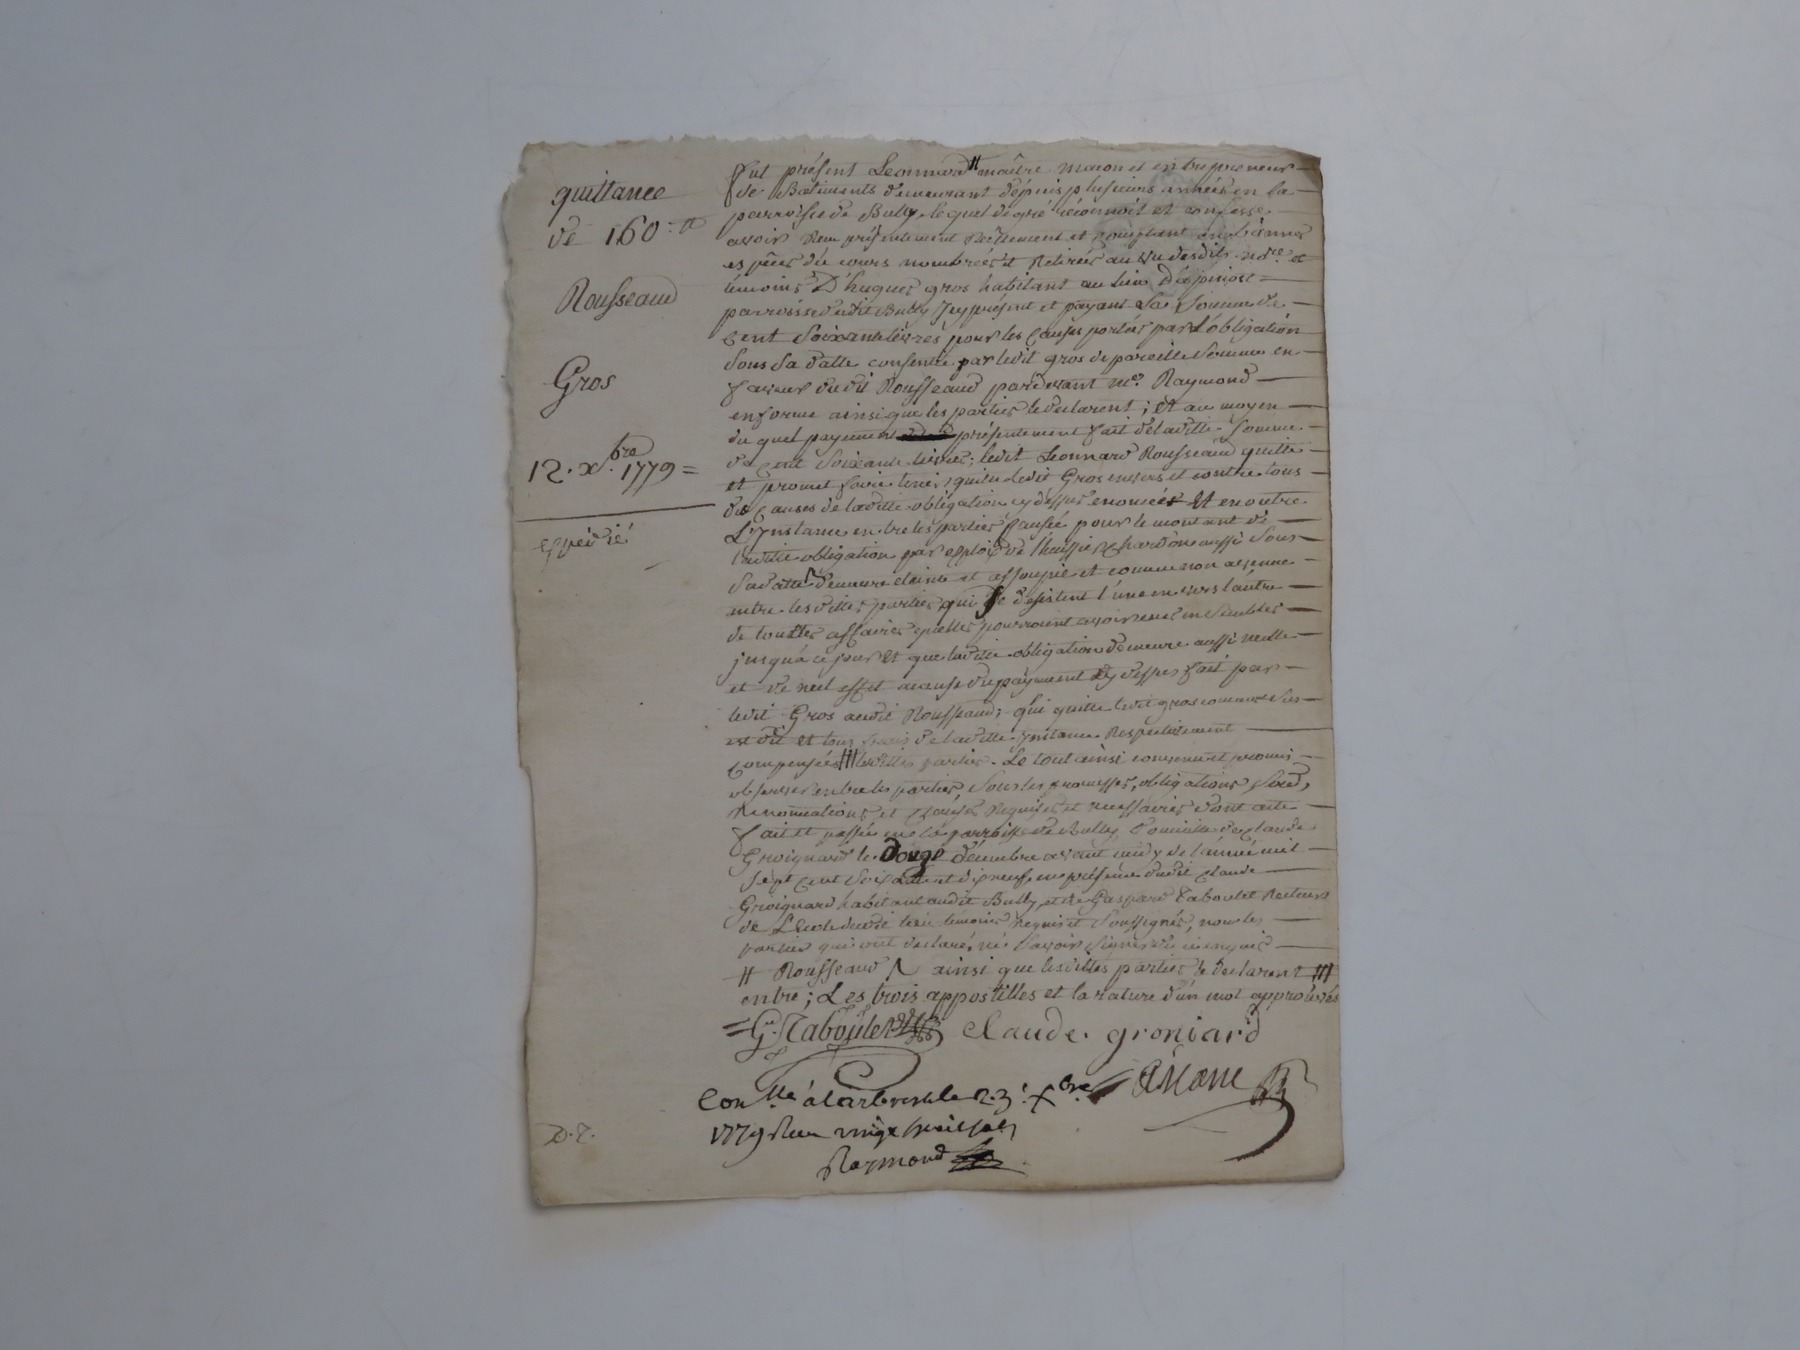 quittance
de 160 ₶
Rousseaud
Gros
12. Xbre 1779 =
expédié
fut présent Leonnard # maître maçon et entrepreneur
de Batiments demeurant depuis plusieurs années en la
parroisse de Bully, lequel de gré reconnoit et confesse
avoir Reçu présentement Réellement et comptant en bonnes
espèces du cours nombrées et Retirées au vu desdits Nore et
témoins D'hugues gros habitant au lieu
parroisse dudit Bully Icy présent et payant La Somme de
cent Soixante livres pour les causes portées par L'obligation
Sous Sa datte consentie par ledit gros de pareille Somme en
faveur dudit Rousseaud pardevant me. Raymond
en forme ainsi que les parties le declarent ; Et au moyen
du quel payement présentement fait de ladite Somme
de cent Soixante livres ; ledit Leonnard Rousseaud quitte
et promet faire tenir quitte ledit Gros envers et contre tous
des causes de ladite obligation cy dessus enoncée Et en outre
L'Instance entre les parties causée pour le montant de
laditte obligation par exploit de l'huissier chardon aussi Sous
Sa datte demeure éteinte et assoupie et comme non avenue
entre lesdittes parties qui Se desistent l'une envers l'autre
de touttes affaires qu'elles pourroient avoir eues ensembles
jusqu'à ce jour Et que laditte obligation demeure aussi nulle
et de nul effet acause du payement cy dessus fait par
ledit Gros audit Rousseaud ; qui quitte ledit gros comme Sus
est dit et tous frais de laditte Instance Respectivement
compensés lll lesdittes parties. Le tout ainsi convenu et promis
observer entre les parties, Sous les promesses, obligations
Renonciations et clauses Requises et necessaires dont acte
fait et passé en la parroisse de Bully, Domicile de claude
Groignard le Douze décembre avant midy de l'année mil
Sept cent Soixante et dix neuf, en présence dudit claude
Groignard habitant audit Bully, et de Gaspard Taboulet Recteur
de L'école dudit lieu témoins requis et Soussignés, non les
parties qui ont declaré ne Savoir Signer de ce enquis
# Rousseaud /\ ainsi que lesdittes parties le declarent lll
entre ; Les trois appostilles et la rature d'un mot approuvés
= G. Taboulet claude. groniard
Conlle à Larbresle le 23. Xbre
1779 Reçu vingt huit sols
Raymond